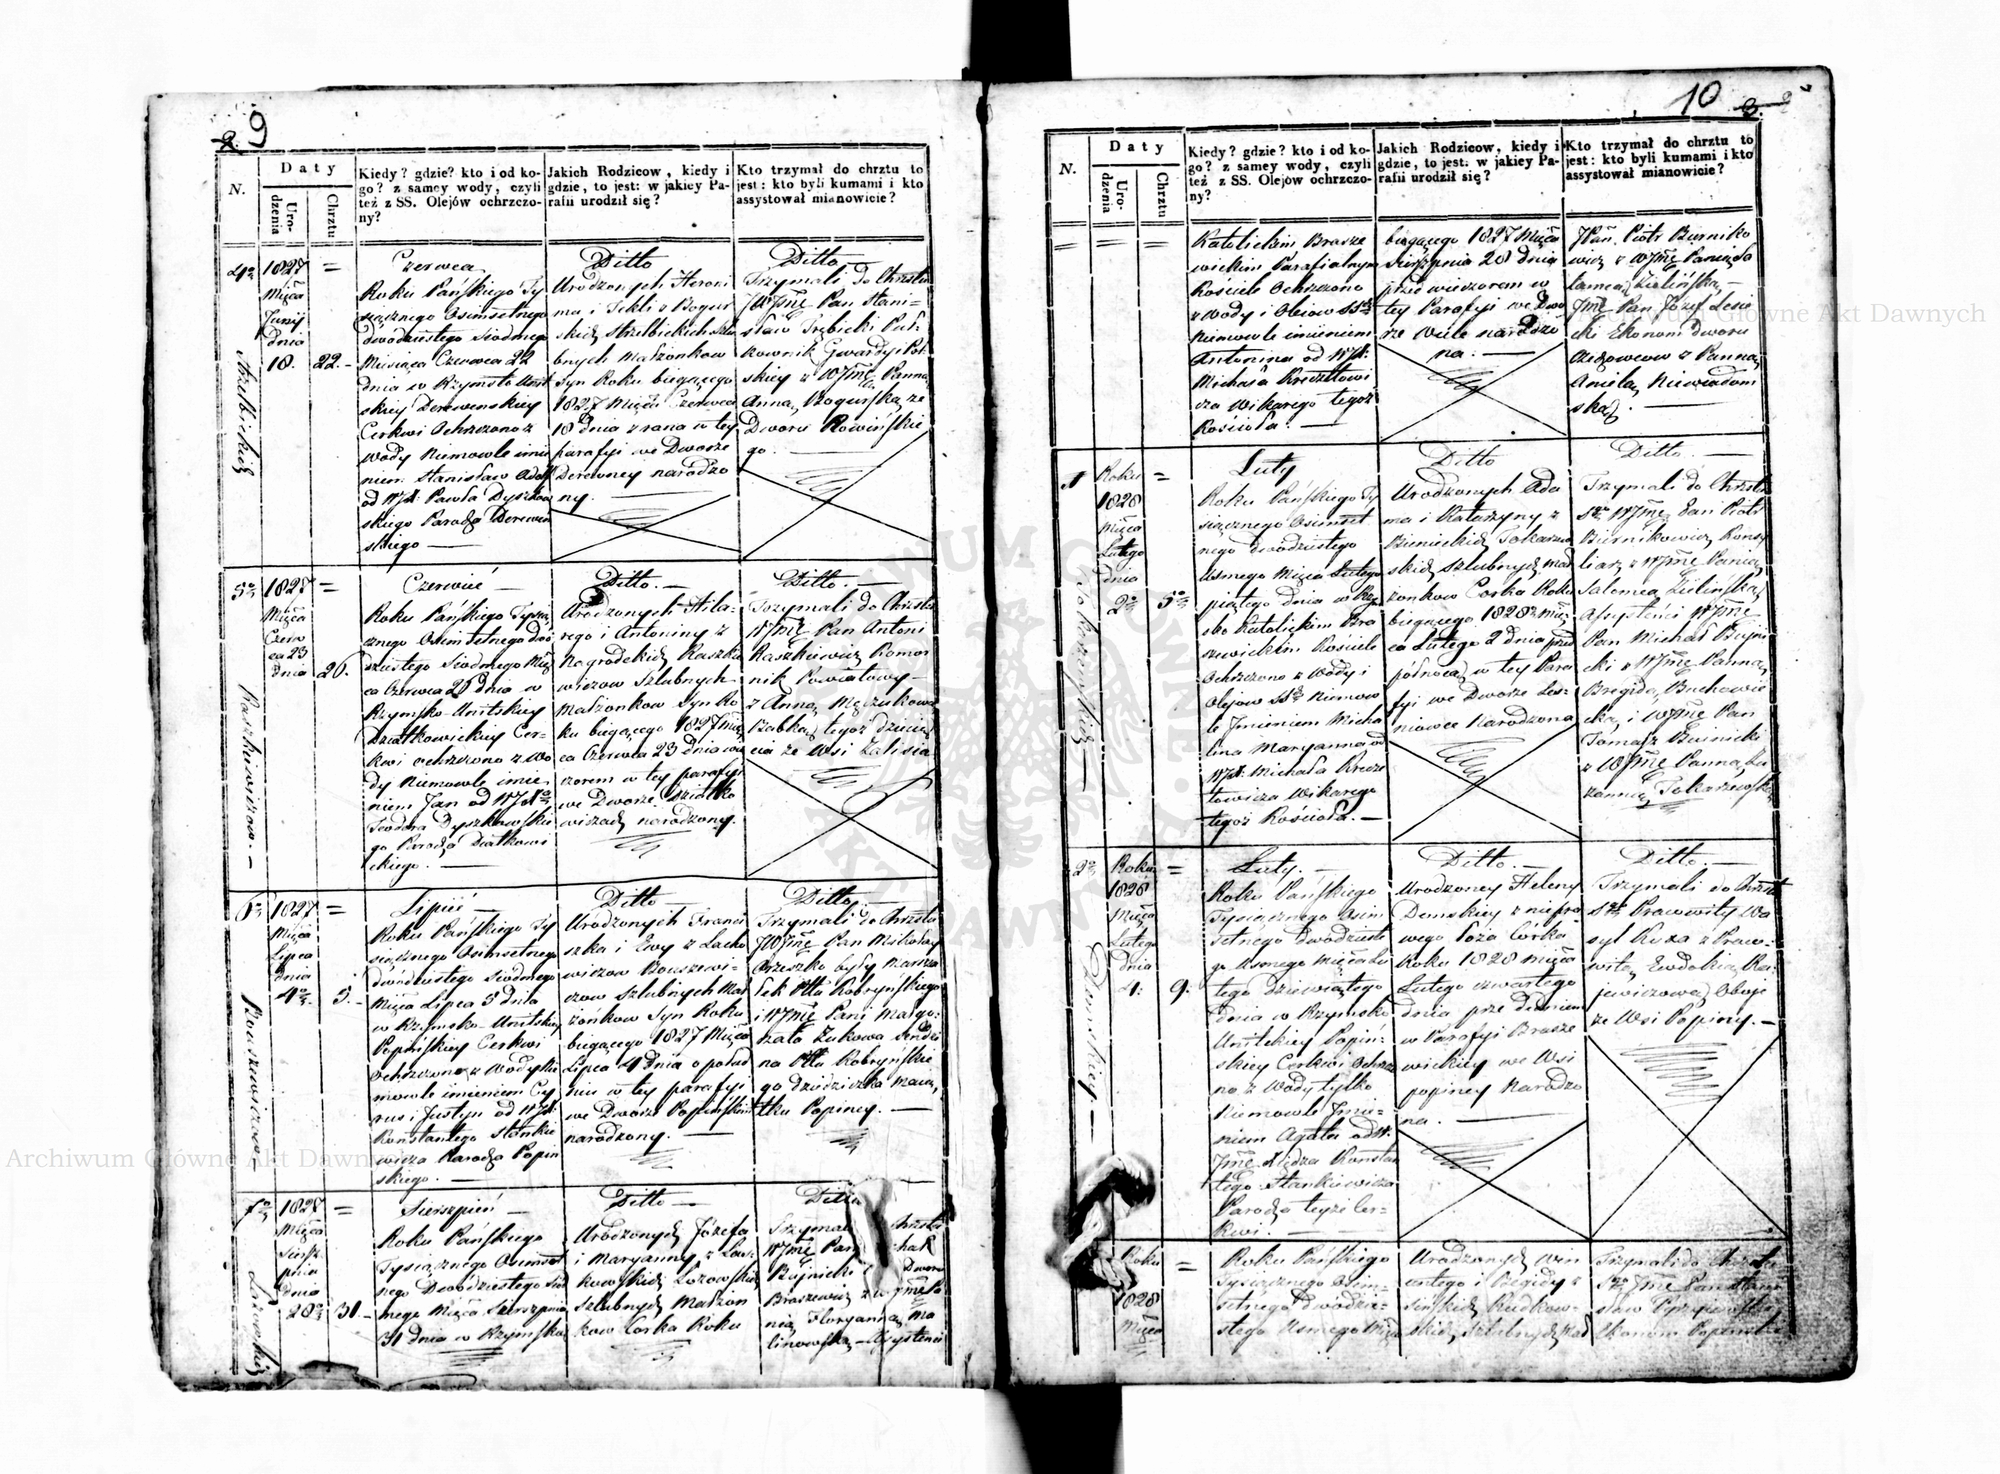 9
N.
Daty
Uro-
dzenia
Chrztu
Kiedy? gdzie? kto i od ko-
go? z samey wody, czyli
też z SS. Olejów ochrzczo-
ny?
Jakich Rodzicow, kiedy i
gdzie, to jest: w jakiey Pa-
rafii urodził się?
Kto trzymał do chrztu to
jest: kto byli kumami i kto
assystował mianowicie?
4to
1827
Mięca
Junij
dnia
18.
22.
Czerwca
Roku Pańskiego Ty
siącznego Osimsetnego
dwódziestego Siodmego
Miesiąca Czerwca 22
dnia w Rzymsko Unit
skiey Derewenskiey
Cerkwi Ochrzczono z
wody Niemowle imie
niem Stanisław
od Pawła Dyszkow
skiego Parocha Derewen
skiego
Ditto
Urodzonych Heroni
ma i Tekli z Bogur
skich Strzelbickich Szlu
bnych Małżonkow
Syn Roku biegącego
1827 Mięca Czerwca
18 dnia z rana w tey
parafyi we Dworze
Derewney narodzo
ny.
Ditto
Trzymali do Chrztu
JWJmć Pan Stani-
sław Trębicki Puł
kownik Gwardyi Pol
skiey z WJmć Panną
Anną Bogurską ze
Dworu
go.
5to
1827
Mięca
Czerw
ca 23
dnia
26.
Raszkiewiczow.
Czerwiec
Roku Pańskiego Tysią
cznego Osimsetnego dwó
dziestego Siodmego Mię
ca Czerwca 26 dnia w
Rzymsko-Unitskiey
Działkowickiey Cer-
kwi ochrzczono z wo
dy Niemowle imie
niem Jan od
Teodora Dyszkowskie
go Parocha Działkowi
ckiego.
Ditto.
Urodzonych Hila-
rego i Antoniny z
Nagrodzkich Raszkie
wiczow Szlubnych
Małżonkow Syn Ro
ku biegącego 1827 Mię
ca Czerwca 23 dnia wie
czorem w tey parafyi
we Dworze Działko
wiczach narodzony.
Ditto.
Trzymali do Chrztu
WJmć Pan Antoni
Raszkiewicz Komor
nik Powiatowy
z Anną
Babką tegoż dziecię
cia ze Wsi Zalisia
6to
1827
Mięca
Lipca
dnia
4to
5.
Bouszewiczow
Lipiec
Roku Pańskiego Ty
siącznego Osimsetnego
dwódziestego Siodmego
Mięca Lipca 5 dnia
w Rzymsko-Unitskiey
Popińskiey Cerkwi
Ochrzczono z Wody Nie
mowle imieniem Cy
rus i Justyn od
Konstantego Stankie
wicza Parocha Popin
skiego.
Ditto
Urodzonych Franci
szka i Ewy z Lacho
wiczow Bouszewi-
czow Szlubnych Mał
żonkow Syn Roku
biegącego 1827 Mięca
Lipca 4 dnia o połud
niu w tey parafyi
we Dworze Popińskim
narodzony.
Ditto.
Trzymali do Chrztu
JWJmć Pan Mikołay
Orzeszko były Marsza
łek Pttu Kobryńskiego
i WJmć Pani Małgo-
rzata Żukowa Sendzi
na Pttu Kobryńskie
go Dziedziczka Maią
tku Popiney.
7to
1827
Mięca
Sierp
nia
dnia
28
31.
Łozowskich
Sierpień
Roku Pańskiego
Tysiącznego Osimset
nego Dwódziestego Siod
mego Mięca Sierpnia
31 dnia w Rzymsko
Ditto
Urodzonych Józefa
i Maryanny z Las-
kowskich Łozowskich
Szlubnych Małżon
kow Córka Roku
Ditto
Trzymali Chrztu
WJmć Pan Michał
Buynicki Dworu
Braszewicz z WJmć Pa
nią Floryanną Ma
linowską Assystenci
10
N.
Daty
Uro-
dzenia
Chrztu
Kiedy? gdzie? kto i od ko-
go? z samey wody, czyli
też z SS. Olejów ochrzczo-
ny?
Jakich Rodzicow, kiedy i
gdzie, to jest: w jakiey Pa-
rafii urodził się?
Kto trzymał do chrztu to
jest: kto byli kumami i kto
assystował mianowicie?
Katolickim Brasze
wickim Parafialnym
Kościele Ochrzczono
z Wody i Oleiow SSch
Niemowle imieniem
Antonina od
Michała Kreczetowi
cza Wikarego tegoż
Kościoła.
biegącego 1827 Mięca
Sierpnia 28 dnia
przed wieczorem w
tey Parafyi we Dwo
rze Wule narodzo
na.
JPan Piotr Burniko
wicz z WJmć Panią Sa
lomeą Zielińską,
Jmć Pan Józef Lesie
cki Ekonom dworu
z Panną
Anielą Niewiadom
ską.
1
Roku
1828
Mięca
Lutego
dnia
2
5
Tokarzewskich
Luty
Roku Pańskiego Ty
siącznego Osimset
nego dwódziestego
Osmego Mięca Lutego
piątego dnia w Rzym
sko Katolickim Bra
szewickim Kościele
Ochrzczono z Wody i
Olejow SSch Niemow
le Jmieniem Micha
lina Maryanna od
Michała Krecze
towicza Wikarego
tegoż Kościoła.
Ditto
Urodzonych Ada
ma i Katarzyny z
Bienieckich Tokarzew
skich Szlubnych Mał
żonkow Corka Roku
biegącego 1828 Mię
ca Lutego 2 dnia przed
północą w tey Para
fyi we Dworze Les-
niowce Narodzona
Ditto.
Trzymali do Chrztu
Sgo WJmć Pan Piotr
Burnikowicz Konsy
liarz z WJmć Panią
Salomeą Zielińską,
Assystenci WJmć
Pan Michał Buyni
cki z WJmć Panną
Brigidą Buchowie
cką i WJmć Pan
Tomasz Buinicki
z WJmć Panną Zu
zanną Tokarzewską
2
Roku
1828
Mięca
Lutego
Dnia
4.
9.
Domskiey
Luty.
Roku Pańskiego
Tysiącznego Osim
setnego dwódzieste
go Osmego Mięca Lu
tego dziewiątego
dnia w Rzymsko
Unitskiey Popin-
skiey Cerkwi Ochrzczo
no z Wody tylko
Niemowle Jmie-
niem Agata od W.
Jmć Xiędza Konstan
tego Stankiewicza
Parocha teyże Cer-
kwi.
Ditto.
Urodzoney Heleny
Domskiey z niepra
wego łoża Córka
Roku 1828 Mięca
Lutego czwartego
dnia prze dedniem
w Parafyi Brasze
wickiey we Wsi
popiney Narodzo
na.
Ditto.
Trzymali do Chrztu
Sgo Pracowity Wa
syl Koza z Praco-
witą Ewdokią Ka-
jewiczową Oboje
ze Wsi Popiny.
Roku
1828
Mięca
Roku Pańskiego
Tysiącznego Osim-
setnego dwódzie-
stego Osmego Mięca
Urodzonych Win
centego i Brygidy z
Rudkow-
skich Szlubnych Mał
Trzymali do Chrztu
Sgo Jmć Pan Stani
sław
Ekonom Popiński
Archiwum Główne Akt Dawnych
Archiwum Główne Akt Dawnych
ARCHIWUM GŁÓWNE AKT DAWNYCH